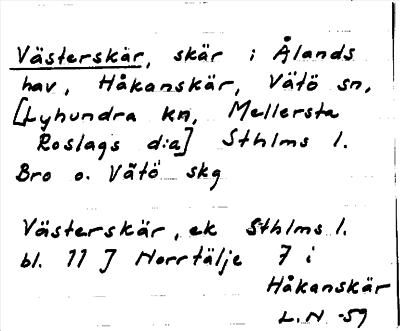 Västerskär, skär i Ålands
hav, Håkanskär, Vätö sn,
[Lyhundra kn, Mellersta
Roslags d:a] Sthlms l.
Bro o. Vätö skg
Västerskär, ek Sthlms l.
bl. 11 J Norrtälje 7 i
Håkanskär
L.N -59